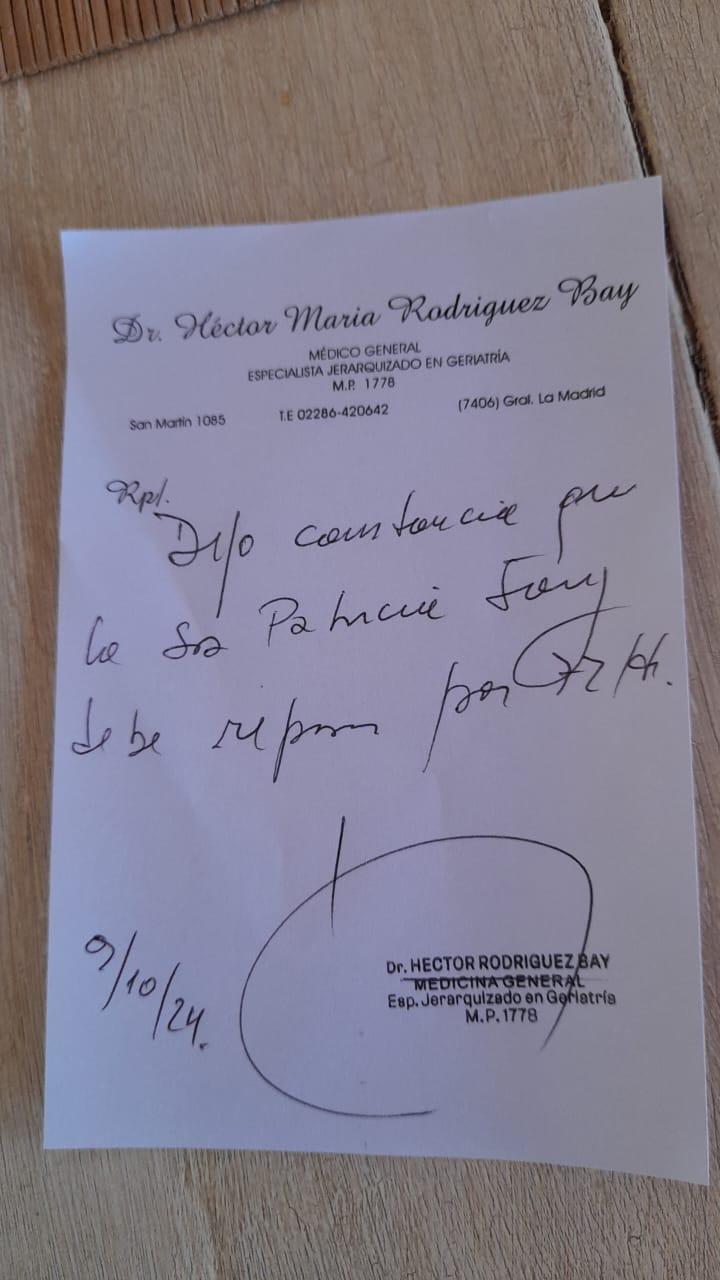 Dr. Héctor Maria Rodriguez Bay
MÉDICO GENERAL
ESPECIALISTA JERARQUIZADO EN GERIATRÍA
M.P. 1778
San Martin 1085 T.E 02286-420642 (7406) Gral. La Madrid
Rp/.
Dejo constancia que
la Sra Patricia
debe reposo por 72 Hs.
9/10/24.
Dr. HECTOR RODRIGUEZ BAY
MEDICINA GENERAL
Esp. Jerarquizado en Geriatría
M.P. 1778